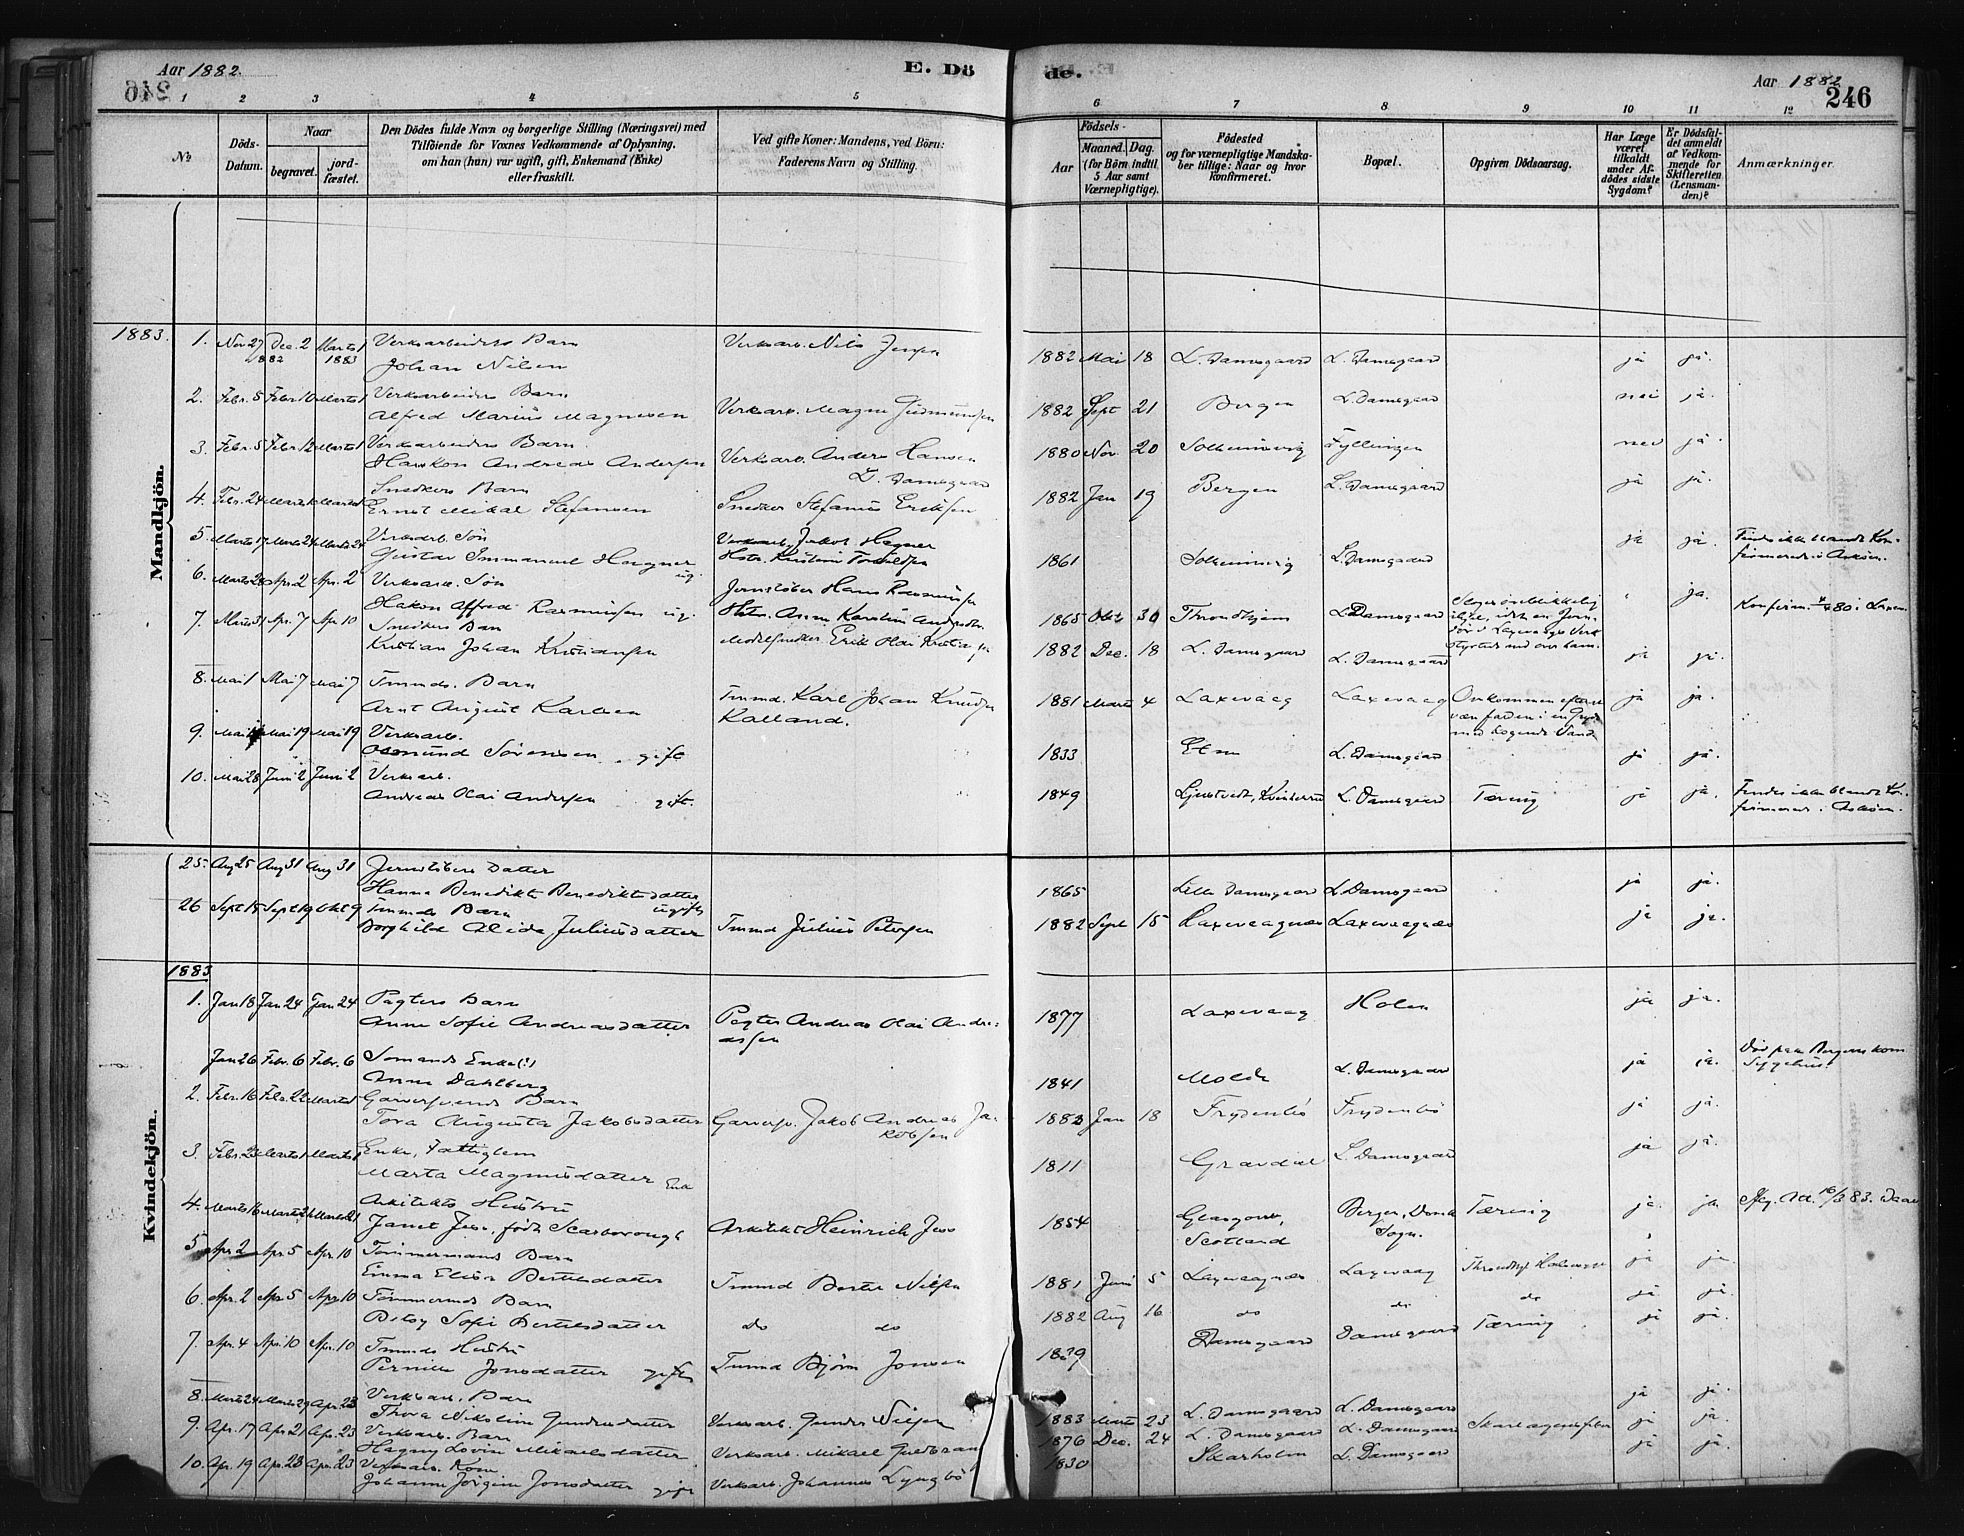 Aar 1882.
E. Dö
de.
Aar 1882
246
1 2 3 4 5 6 7 8 9 10 11 12
No
Döds-Datum.
Naar
begravet.
jord-fæstet.
Den Dödes fulde Navn og borgerlige Stilling (Næringsvei) med
Tilföiende for Voxnes Vedkommende af Oplysning,
om han (hun) var ugift, gift, Enkemand (Enke)
eller fraskilt.
Ved gifte Koner: Mandens, ved Börn:
Faderens Navn og Stilling.
Födsels-
Aar
Maaned. Dag.
(for Börn indtil
5 Aar samt
Værnepligtige).
Födested
og for værnepligtige Mandska-
ber tillige: Naar og hvor
konfirmeret.
Bopæl.
Opgiven Dödsaarsag.
Har Læge
været
tilkaldt
under Af-
dödes sidste
Sygdom?
Er Dödsfal-
det anmeldt
af Vedkom-
mende for
Skifteretten
(Lensman-
den)?
Anmærkninger.
Mandkjön.
1883.
1. Nov 27 Dec. 2 Marts 1 Verksarbeiders Barn Verksarb. Nils
1882 1883 Johan Nilsen 1882 Mai 18 L. Damsgaard L. Damsgaard ja ja.
2. Febr. 5 Febr. 10 Marts 1 Verksarbeiders Barn
Alfred Marius Magnesen Verksarb. Magne Gudmundsen 1882 Sept 21 Bergen L. Damsgaard nei ja.
3. Febr. 5 Febr. 12 Marts 1 Verksarbeiders Barn
Haakon Andreas Andersen Verksarb. Anders Hansen 1880 Nov. 20 Solheimsvig Fyllingen nei ja.
L. Damsgaard
4. Febr. 24 Marts 1 Marts 1 Snedkers Barn
Ernst Mikal Stefansen Snedker Stefanus Eriksen 1882 Jan 19 Bergen L. Damsgaard ja ja.
5. Marts 17 Marts 24 Marts 24 Verksarb. Søn Verksarb. Jakob Hagner
Gustav Immanuel Hagner ug. 1861 Solheimsvig L. Damsgaard ja ja. Findes ikke blandt Kon-
firmerede i Askøen.
6. Marts 28 Apr. 2 Apr. 2 Verksarb. Søn Jernstøber Hans Rasmussen
Hakon Alfred Rasmussen ug. 1865 Okt. 30 Throndhjem L. Damsgaard ja. Konfirm. 80 i Laxev.
7. Marts 31 Apr. 7 Apr. 10 Snedkers Barn Modelsnedker Erik Olai Kristiansen
Kristian Johan Kristiansen 1882 Dec. 18 L. Damsgaard L. Damsgaard ja ja.
8. Mai 1 Mai 7 Mai 7 Tmmds. Barn Tmmd. Karl Johan Knudsen
Arnt August Karlsen Kalland. 1881 Marts 4 Laxevaag Laxevaag Omkommen efter at
være falden i en Gryde
med kogende Vand ja ja.
9. Mai Mai 19 Mai 19 Verksarb.
Osmund Sørensen gift 1833 Etne L. Damsgaard ja ja.
10. Mai 28 Juni 2 Juni 2 Verksarb.
Andreas Olai Andersen gift. 1849 Kvinherred L. Damsgaard Tæring ja ja. Findes ikke blandt Kon-
firmerede i Askøen.
Kvindekjön.
25. Aug 25 Aug 31 Aug 31 Jernstøbers Datter
Hanna Benedikte Benediktsdatter ugift 1865 Lille Damsgaard L. Damsgaard ja ja.
26 Sept 18 Sept 19 Okt 9 Tmmds Barn
Borghild Alida Juliusdatter Tmmd Julius Petersen 1882 Sept 15 Laxevaagnæs Laxevaagnæs ja ja.
1883
1. Jan 18 Jan 24 Jan 24 Pagters Barn
Anne Sofie Andreasdatter Pagter Andreas Olai Andre-
assen 1877 Laxevaag Holen ja ja.
Jan 26 Febr. 6 Febr. 6 Sømands Enke(?)
Anne Dahlberg 1841 Molde L. Damsgaard ja ja. Død paa Bergens kom.
Sygehus.
2. Febr. 16 Febr. 22 Marts 1 Garversvends Barn
Tora Augusta Jakobsdatter Garversv. Jakob Andreas Ja-
kobsen 1883 Jan 18 Frydenbø Frydenbø ja ja.
3. Febr. 23 Marts 1 Marts 1 Enke, Fattiglem
Marta Magnusdatter Enke 1811 Gravdal L. Damsgaard ja ja.
4. Marts 16 Marts 21 Marts 21 Arkitekts Hustru
Janet Jess, født Scarborough Arkitekt Heinrich Jess 1854 Glasgow,
Scotland Bergen, Domk.
Sogn. Tæring ja. ja
5. Apr. 2 Apr. 5 Apr. 10 Tømmermands Barn
Emma Elise Bertelsdatter Tmmd Bertel Nilsen 1881 Juni 5 Laxevaagnæs Laxevaag ja ja.
6. Apr. 2 Apr 5 Apr 10 Tømmermds Barn
Betsy Sofie Bertelsdatter do do 1882 Aug 16 do do do ja ja.
7. Apr. 4 Apr. 10 Apr. 10 Tmmds Hustru
Pernille Jonsdatter gift Tmmd Bjørn Jonsen Damsgaard Damsgaard Tæring ja ja.
8. Marts 24 Marts 29 Apr. 23 Verksarb. Barn
Thora Nikoline Gundersdatter Verksarb. Gunder Nilsen 1883 Marts 23 L. Damsgaard L. Damsgaard ja ja.
9. Apr. 17 Apr. 21 Apr. 23 Verksarb. Barn
Hagny Lovise Mikaelsdatter Verksarb. Mikael 1876 Dec. 24 L. Damsgaard L. Damsgaard Skarlagensfeber ja ja.
10. Apr. 19 Apr. 23 Apr. 23 Verksarb. Kone
Johanne Jørgine Jonsdatter gift Verksarb. Johannes Lyngbø 1830 Skarholm L. Damsgaard ja ja.